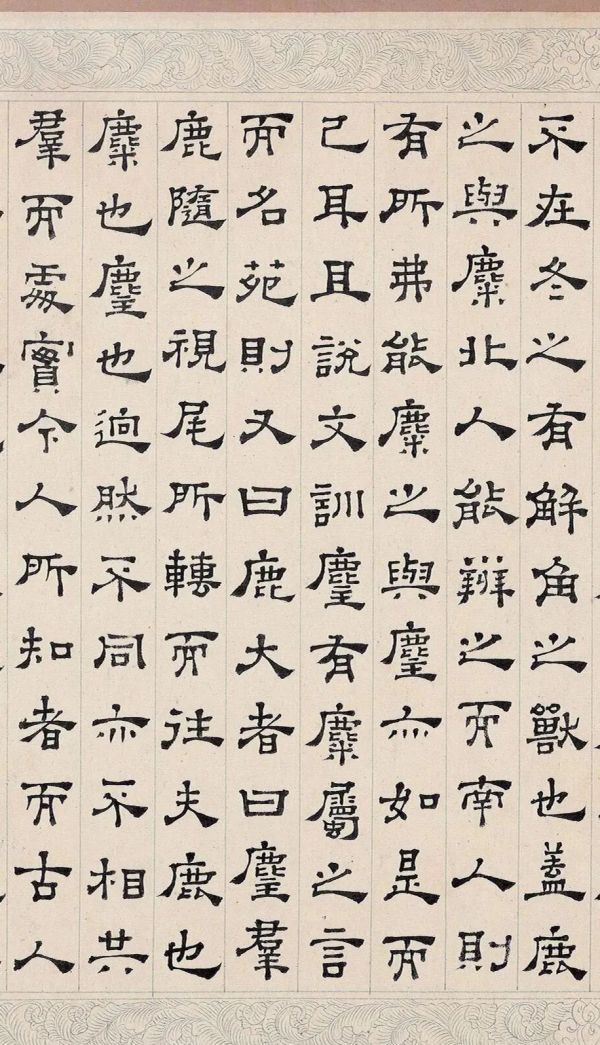 不在冬之有解角之獸也蓋鹿
之與麋北人能辨之而南人則
有所弗能麋之與麈亦如是而
已耳且說文訓麈有麋屬之言
而名苑則又曰鹿大者曰麈羣
鹿隨之視尾所轉而往夫鹿也
麋也麈也逈然不同亦不相共
羣而處實今人所知者而古人